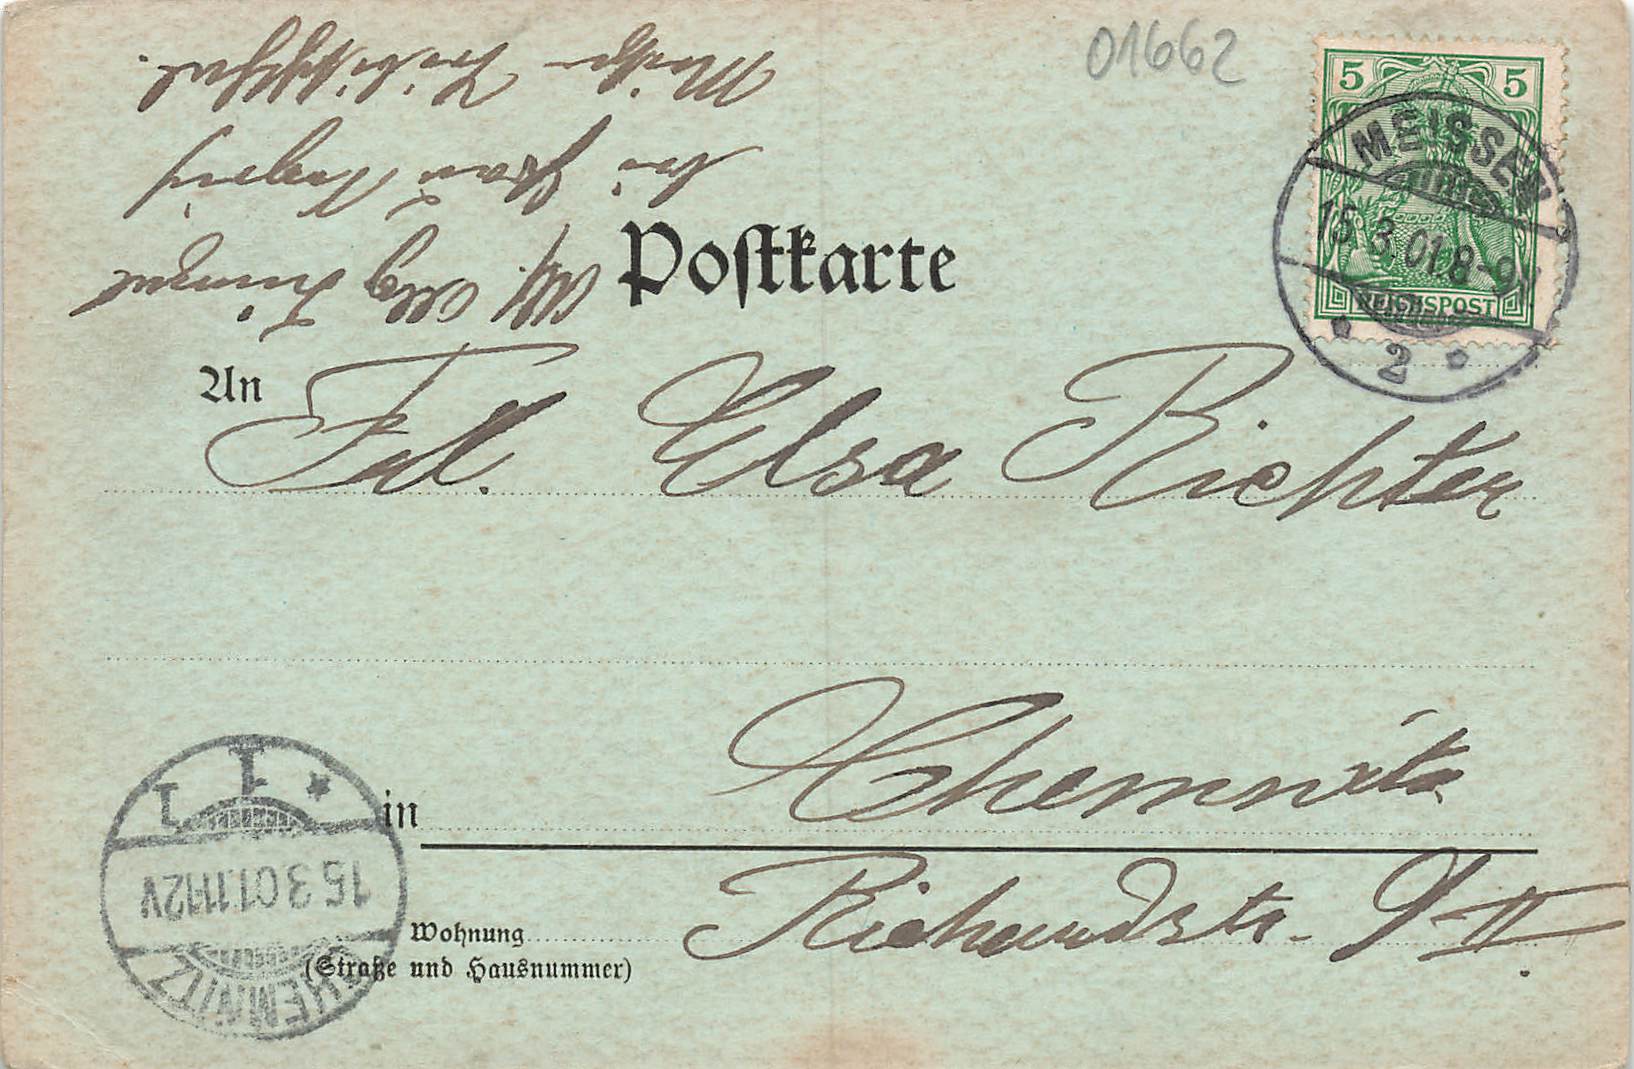 01662
5 5
MEISSEN
15.3.01.8-9V
REICHSPOST
2
Postkarte
An Frl. Elsa Richter
in Chemnitz
Wohnung Richardstr. 9 II.
(Straße und Hausnummer)
CHEMNITZ
15.3.01.11-12V
* 1 1
bei Frau